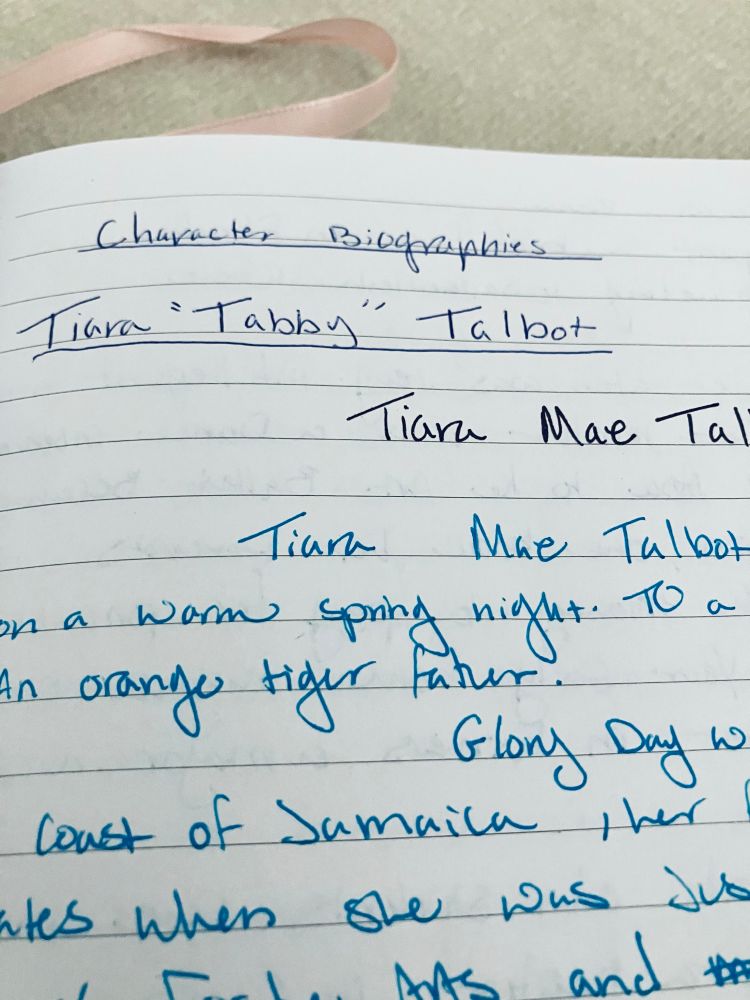 Character Biographies
Tiara "Tabby" Talbot
Tiara Mae Tal
Tiara Mae Talbot
on a warm spring night. To a
An orange tiger father.
Glory Day w
Coast of Jamaica, her
ates when she was Jus
Arts and